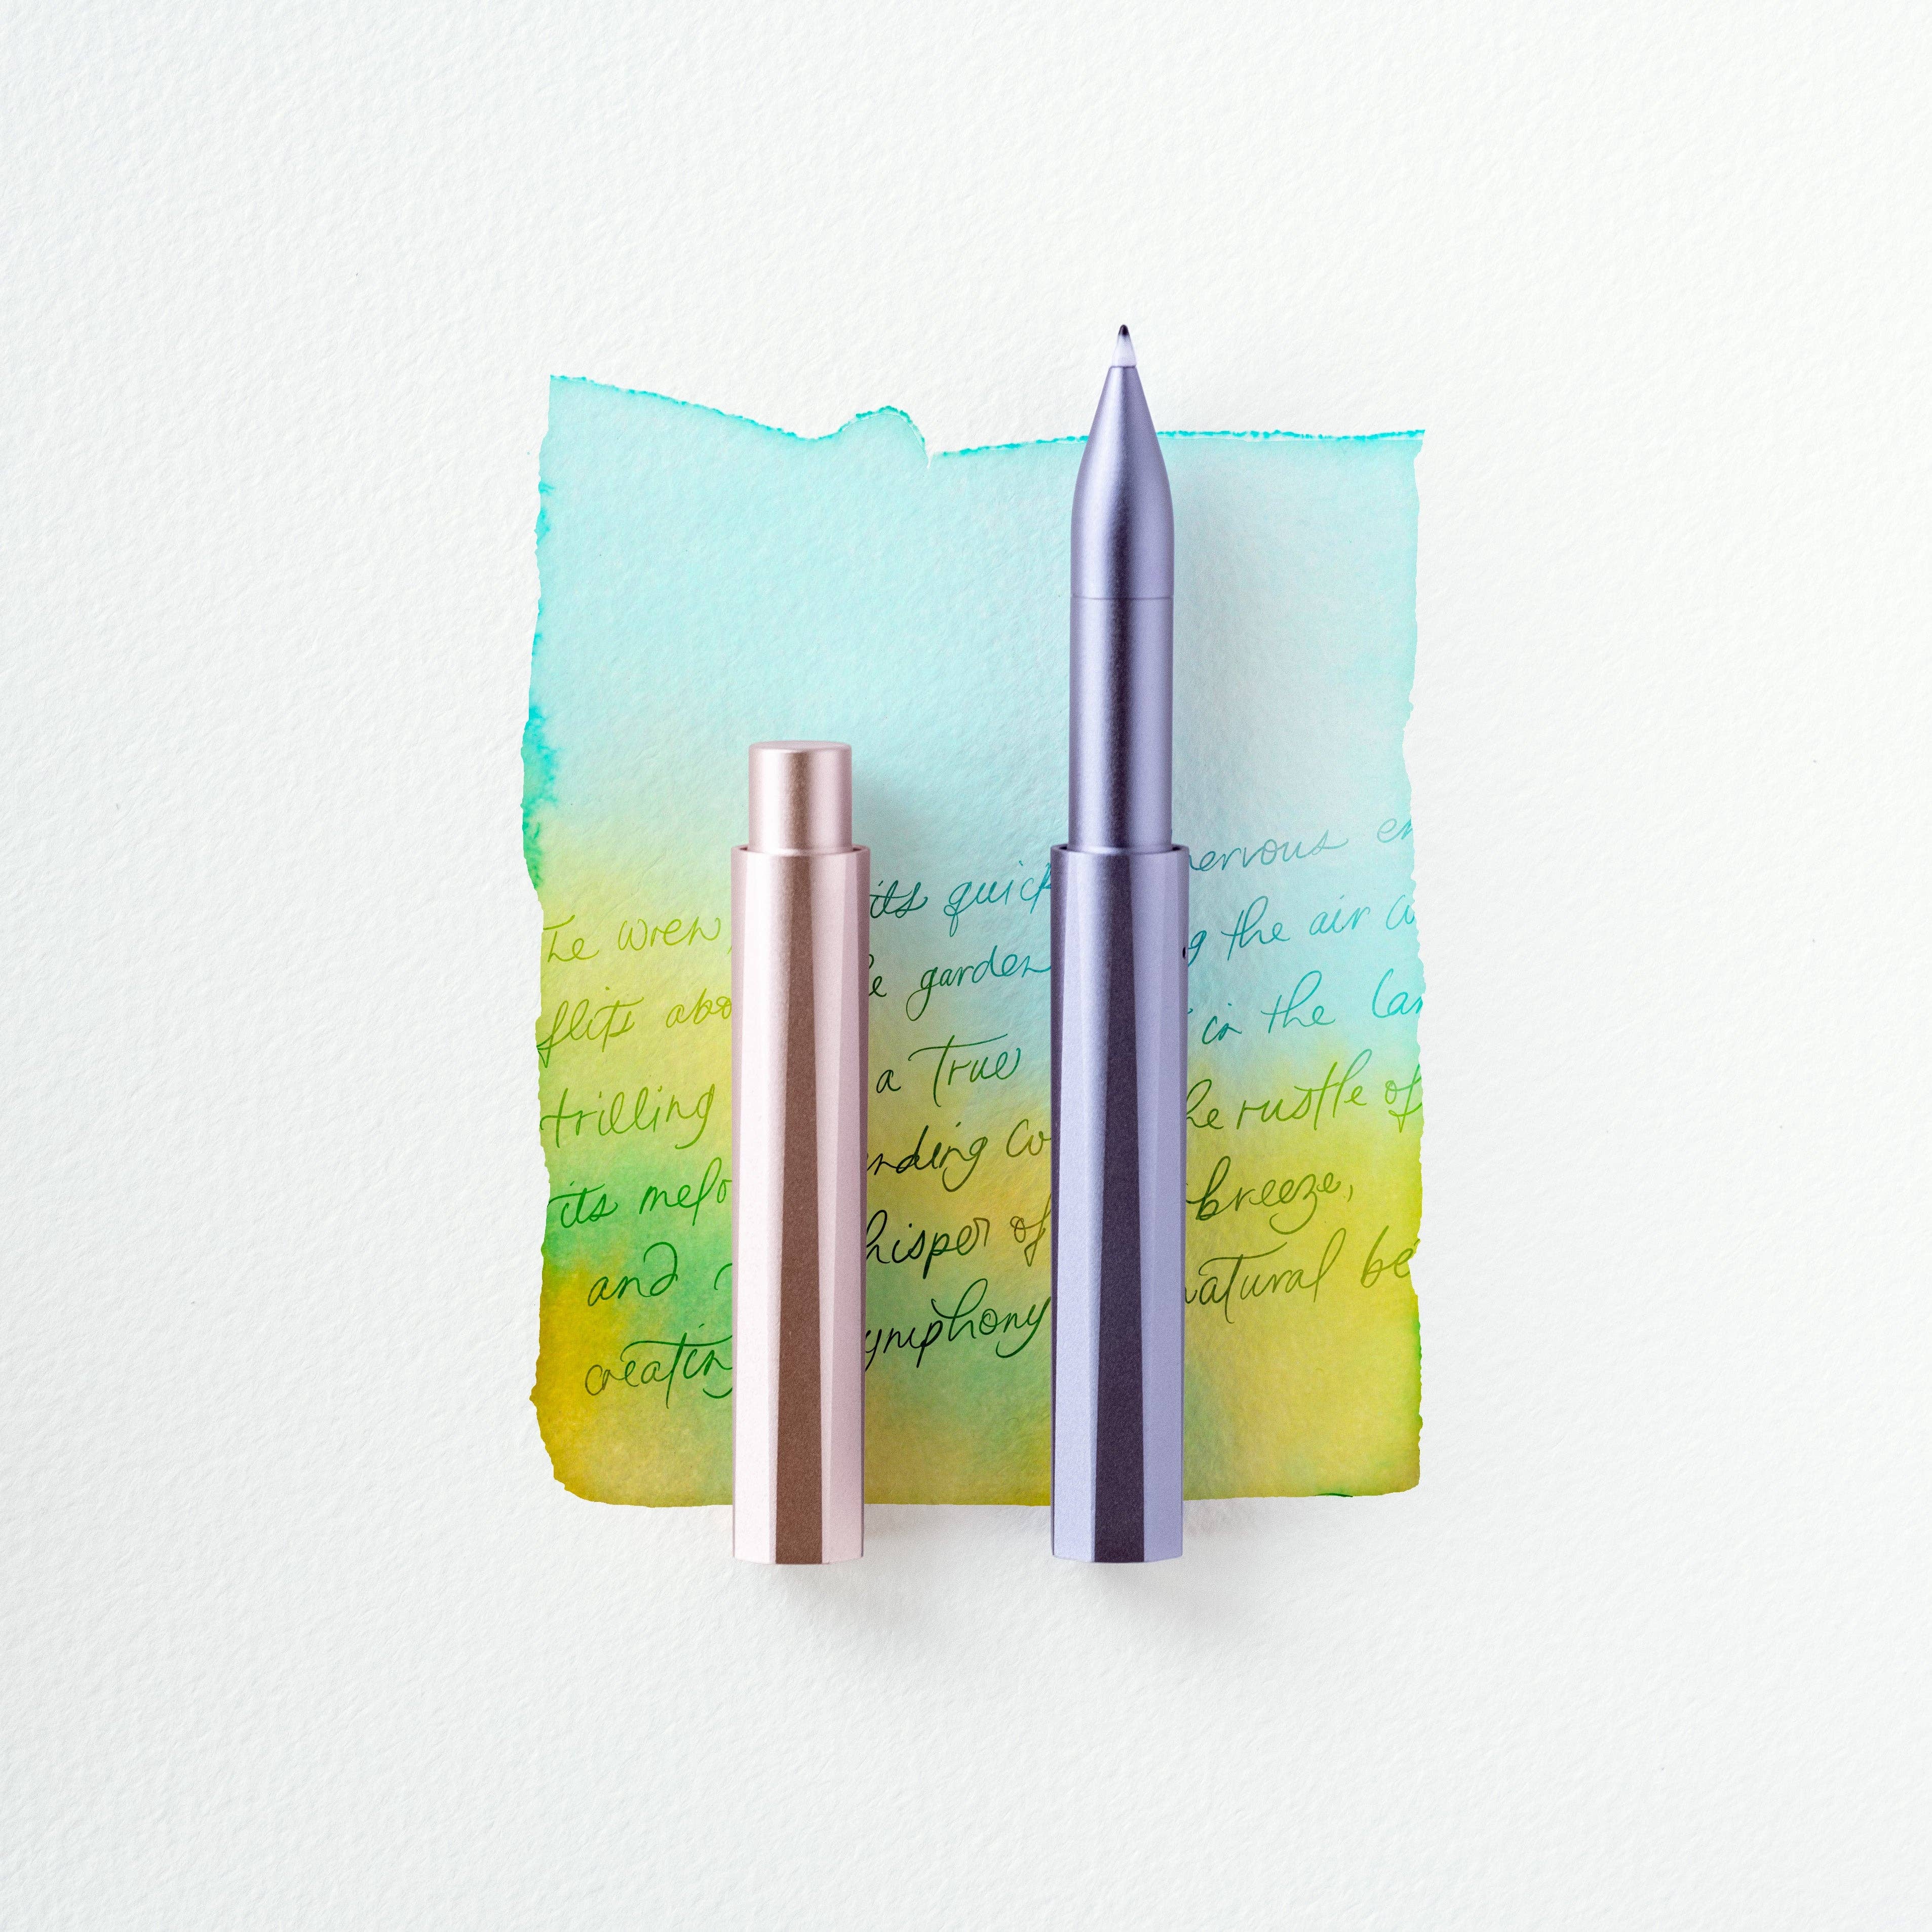 The wren, its quick nervous en
flits abo he garden g the air w
trilling a true in the lan
its melo ending co he rustle of
and hisper of breeze,
creating ymphony natural be